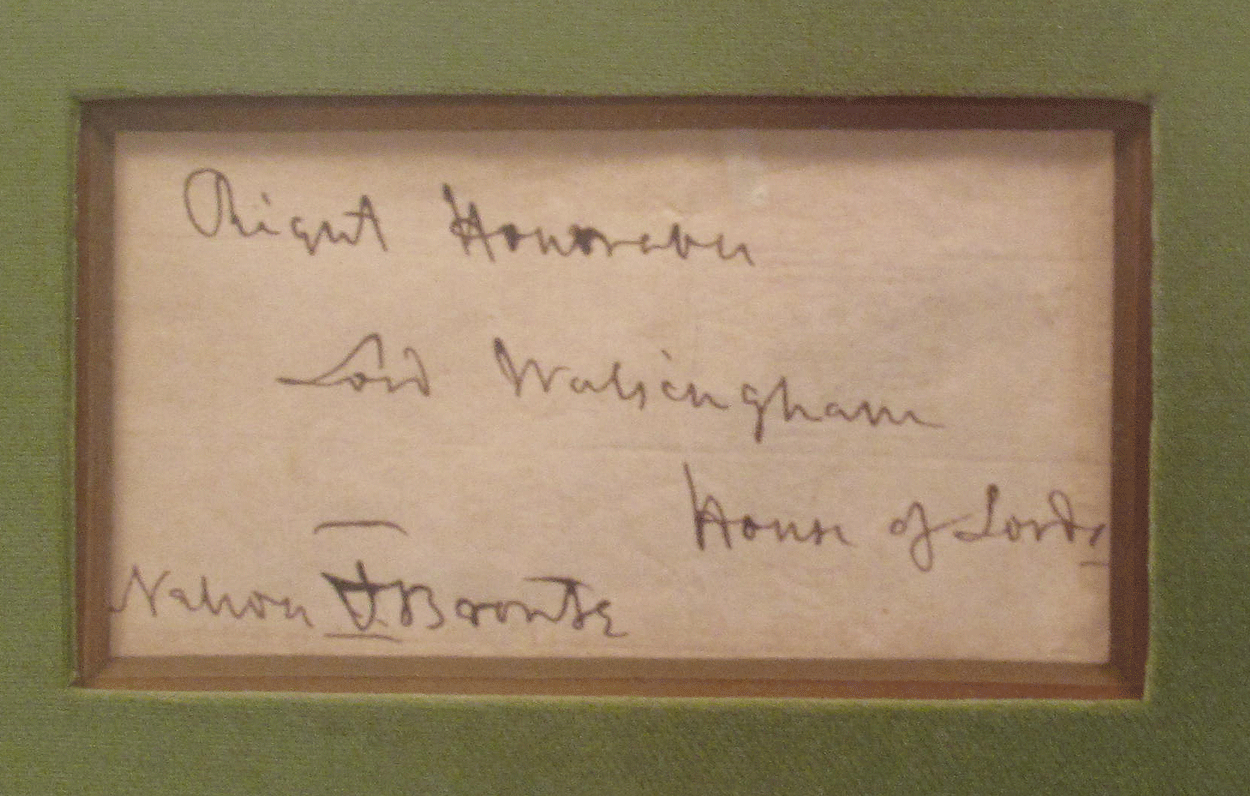 Right Honorable
Lord Walsingham
House of Lords
Nelson & Bronte